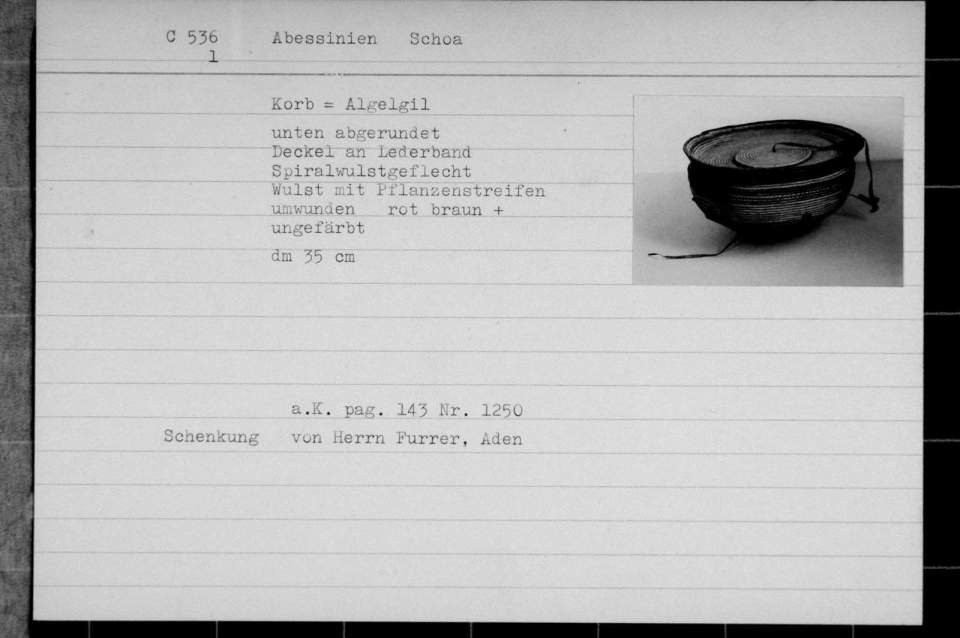 C 536 Abessinien Schoa
1
Korb = Algelgil
unten abgerundet
Deckel an Lederband
Spiralwulstgeflecht
Wulst mit Pflanzenstreifen
umwunden rot braun +
ungefärbt
dm 35 cm
a.K. pag. 143 Nr. 1250
Schenkung von Herrn Furrer, Aden